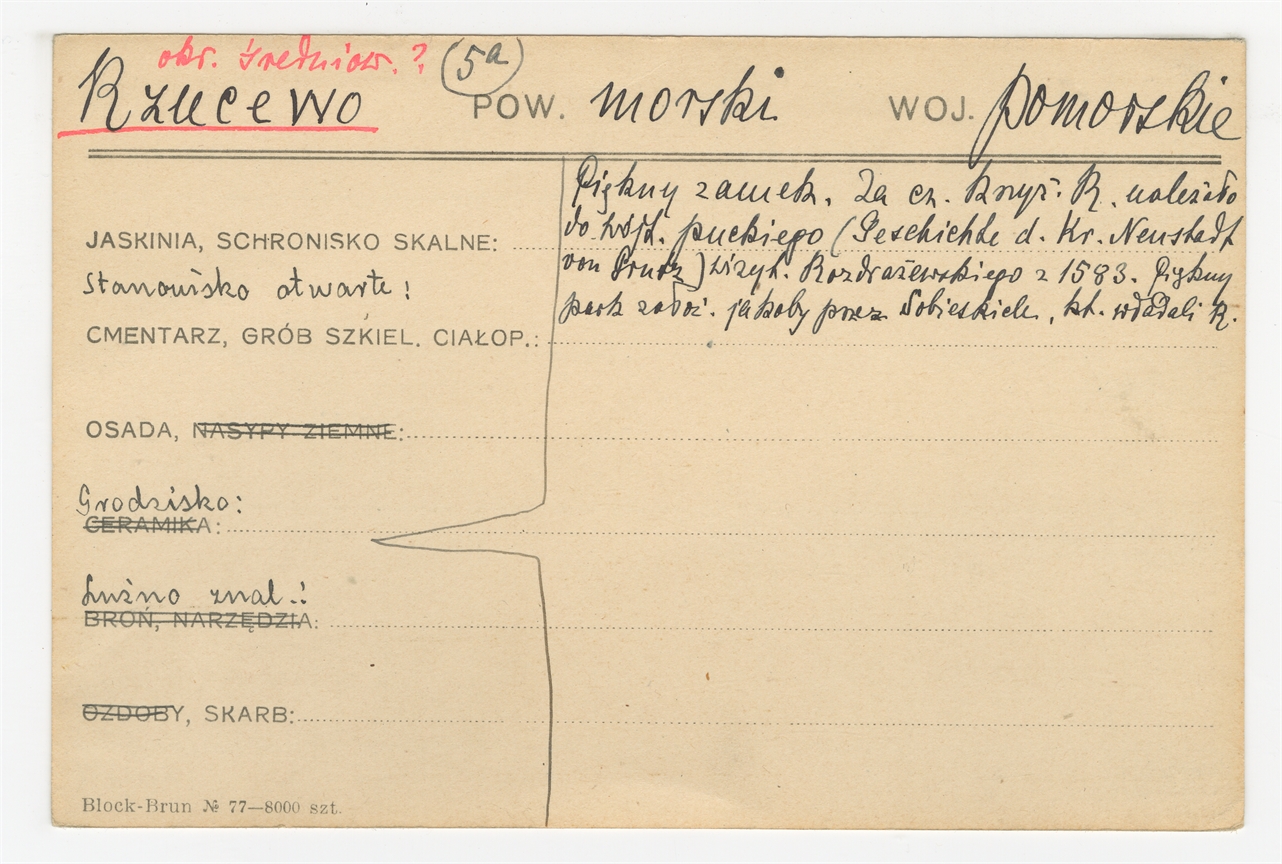 okr. średniow. ? (5a)
Rzucewo POW. morski WOJ. pomorskie
Piękny zamek. Za cz. krzyż. R. należało
do wójt. puckiego (Geschichte d. Kr. Neustadt
JASKINIA, SCHRONISKO SKALNE:
von Prutz) wizyt. Rozdrażewskiego z 1583. Piękny
Stanowisko otwarte:
park założ. jakoby przez Sobieskich, kt. władali R.
CMENTARZ, GRÓB SZKIEL. CIAŁOP.:
OSADA, NASYPY ZIEMNE:
Grodzisko:
CERAMIKA:
Luźno znal.:
BROŃ, NARZĘDZIA:
OZDOBY, SKARB:
Block-Brun № 77—8000 szt.